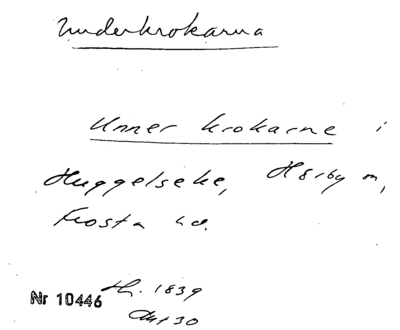 Underkrokarna
Unner krokarne i
Huggelseke, Hörby sn,
Frosta hd.
Nr 10446 Hs. 1839
Akt 30